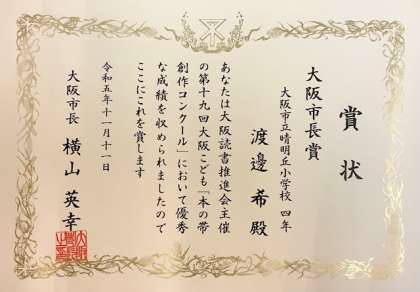 賞状
大阪市長賞
大阪市立晴明丘小学校 四年
渡邊 希 殿
あなたは大阪読書推進会主催
の第十九回大阪こども「本の帯
創作コンクール」において優秀
な成績を収められましたので
ここにこれを賞します
令和五年十一月十一日
大阪市長 横山 英幸